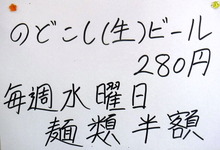 のどごし(生)ビール
280円
毎週水曜日
麺類半額